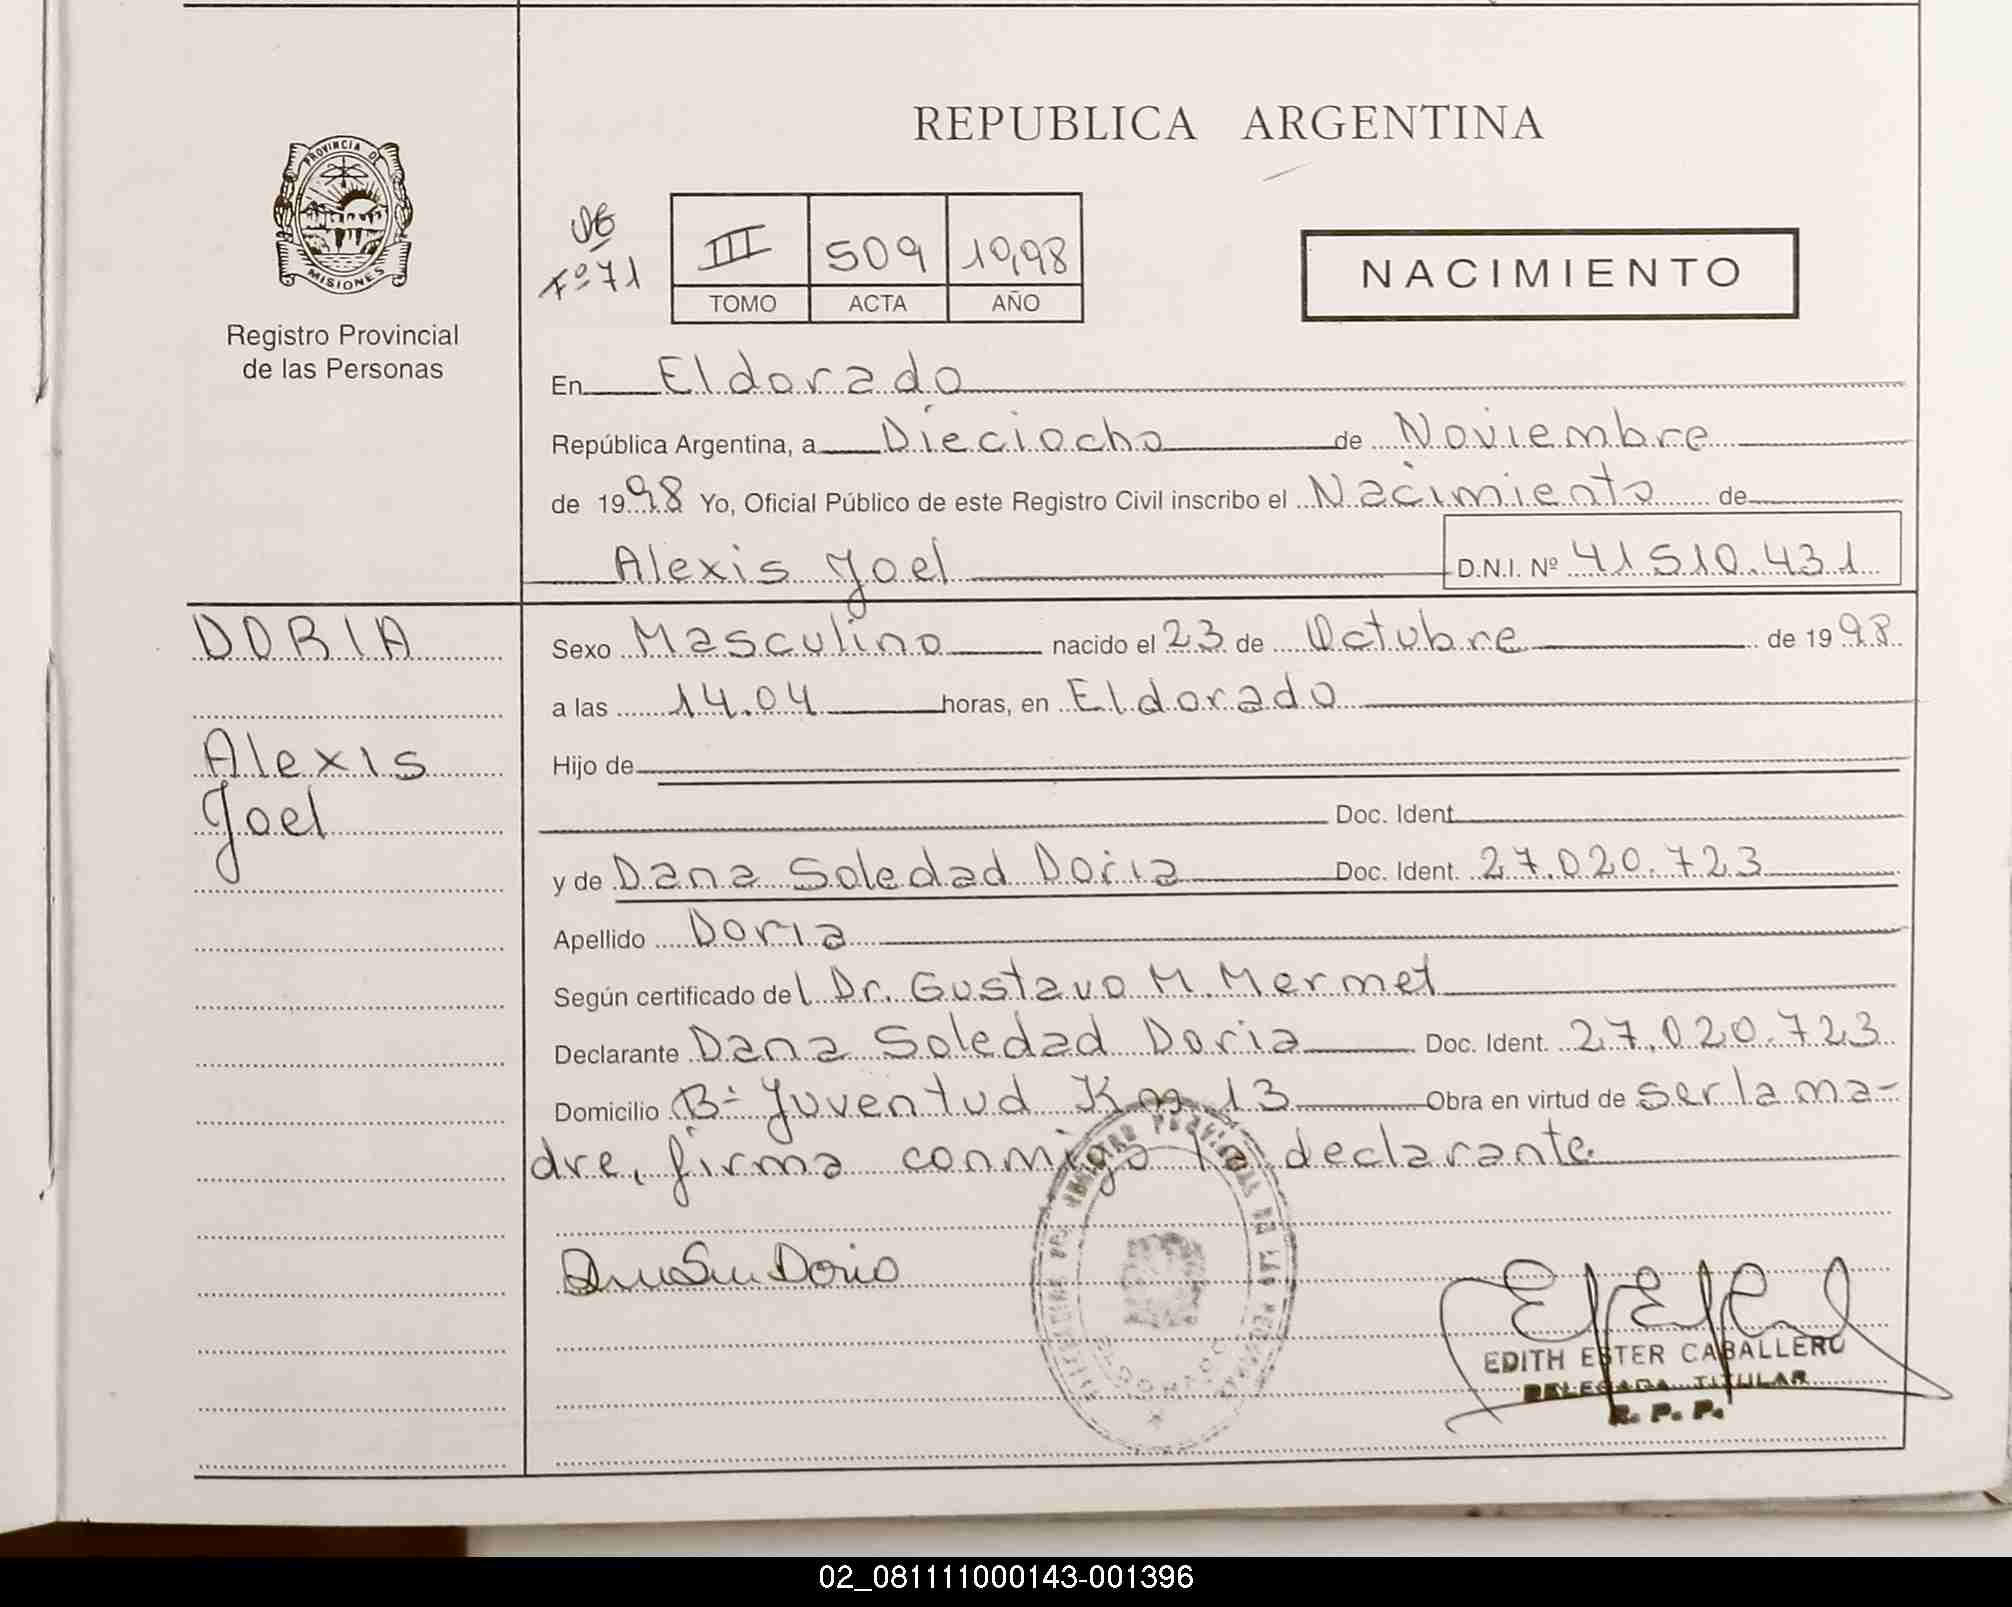 REPUBLICA ARGENTINA
PROVINCIA DE
MISIONES
Registro Provincial
de las Personas
Fº 71
III 509 1998
TOMO ACTA AÑO
NACIMIENTO
En Eldorado
República Argentina, a Dieciocho de Noviembre
de 1998 Yo, Oficial Público de este Registro Civil inscribo el Nacimiento de
Alexis Joel D.N.I. Nº 41510.431
DORIA
Alexis
Joel
Sexo Masculino nacido el 23 de Octubre de 1998
a las 14.04 horas, en Eldorado
Hijo de
Doc. Ident.
y de Dana Soledad Doria Doc. Ident. 27.020.723
Apellido Doria
Según certificado del Dr. Gustavo M. Mermet
Declarante Dana Soledad Doria Doc. Ident. 27.020.723
Domicilio Bº Juventud Km 13 Obra en virtud de ser la ma-
dre, firma conmigo la declarante.
Doria
EDITH ESTER CABALLERO
DELEGADA TITULAR
R. P. P.
02_081111000143-001396